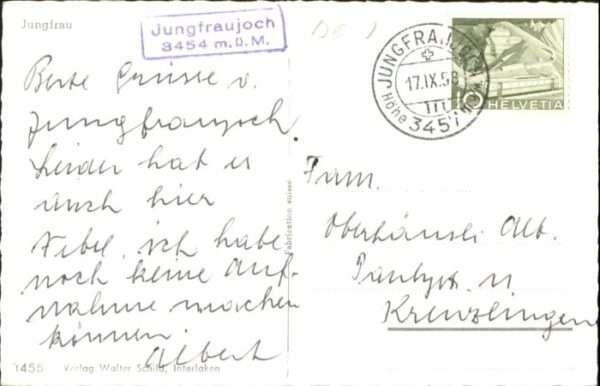 Jungfrau
Jungfraujoch
3454 m.ü.M.
Beste Grüsse v.
Jungfraujoch.
Leider hat es
auch hier
Nebel. ich habe
noch keine Auf-
nahme machen
können.
Albert
1455 Verlag Walter Schild, Interlaken
Fabrication suisse
JUNGFRAUJOCH
17.IX.58
Höhe 3457 m
10 HELVETIA
Fam.
Oberhänsli Alb.
11
Kreuzlingen